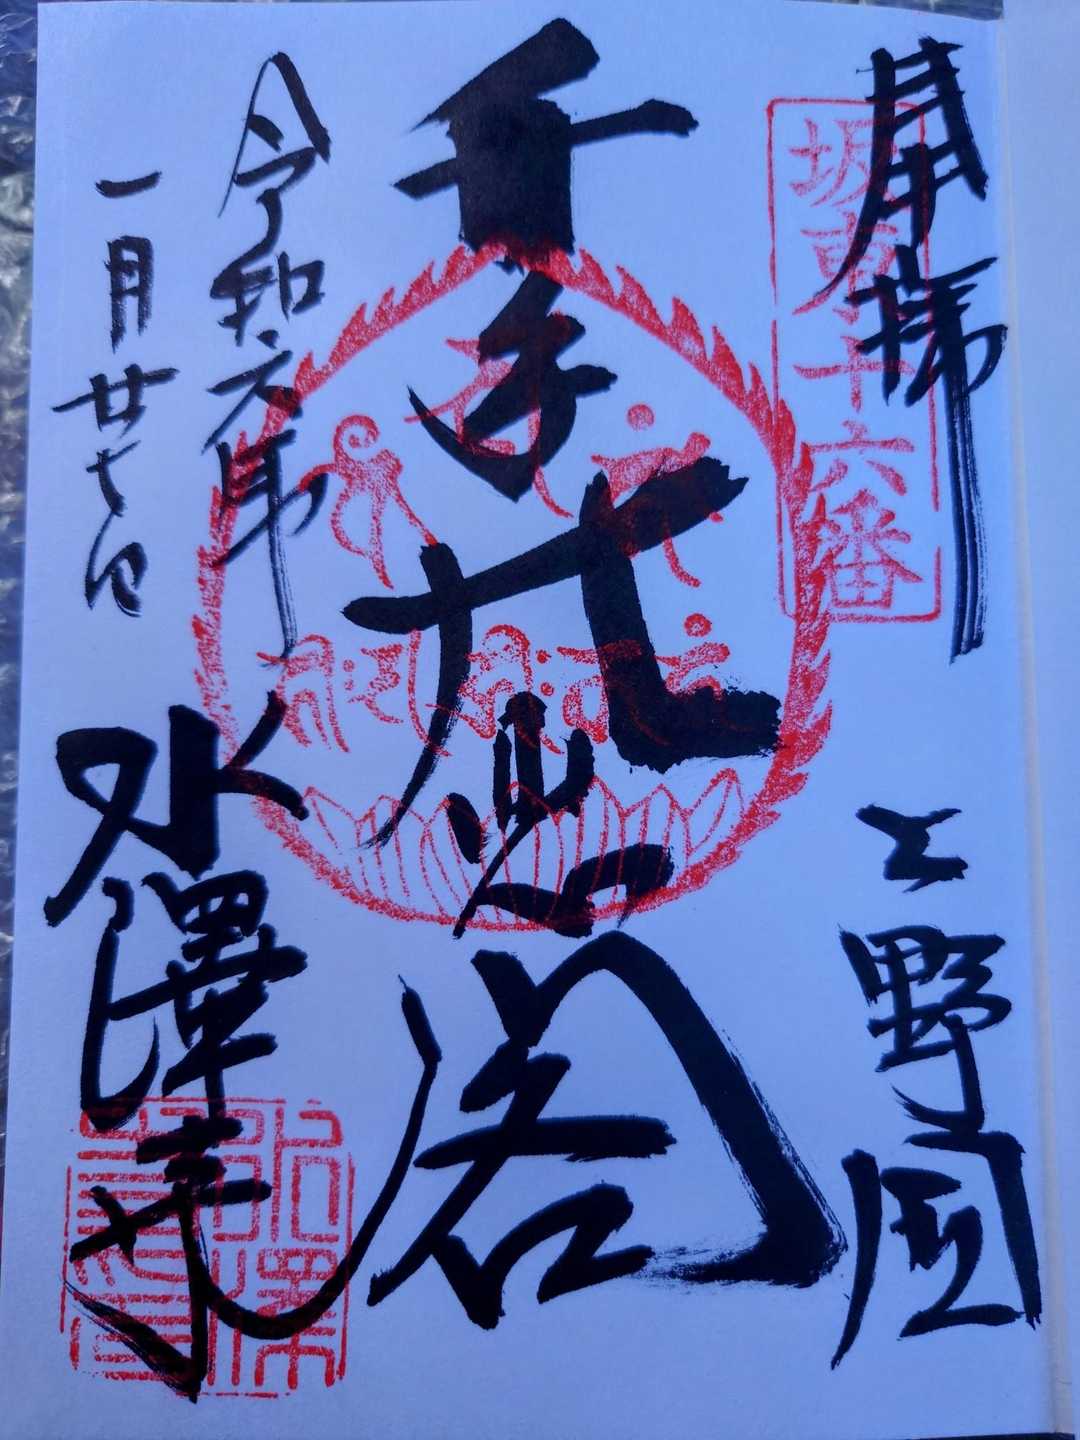 奉拝
坂東十六番
上野国
千手大悲閣
令和六年
一月廿七日
水澤寺